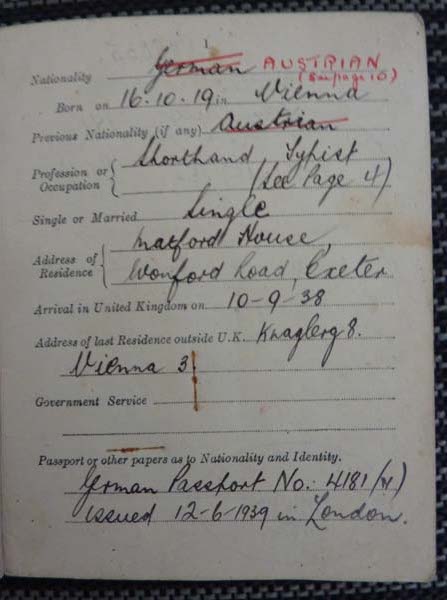 1
Nationality German AUSTRIAN
(See page 10)
Born on 16.10.19 in Vienna
Previous Nationality (if any) Austrian
Profession or Occupation Shorthand Typist
(See Page 4)
Single or Married Single
Address of Residence Matford House,
Wonford Road, Exeter
Arrival in United Kingdom on 10-9-38
Address of last Residence outside U.K. 8.
Vienna 3
Government Service
Passport or other papers as to Nationality and Identity.
German Passport No: 4181
issued 12-6-1939 in London.